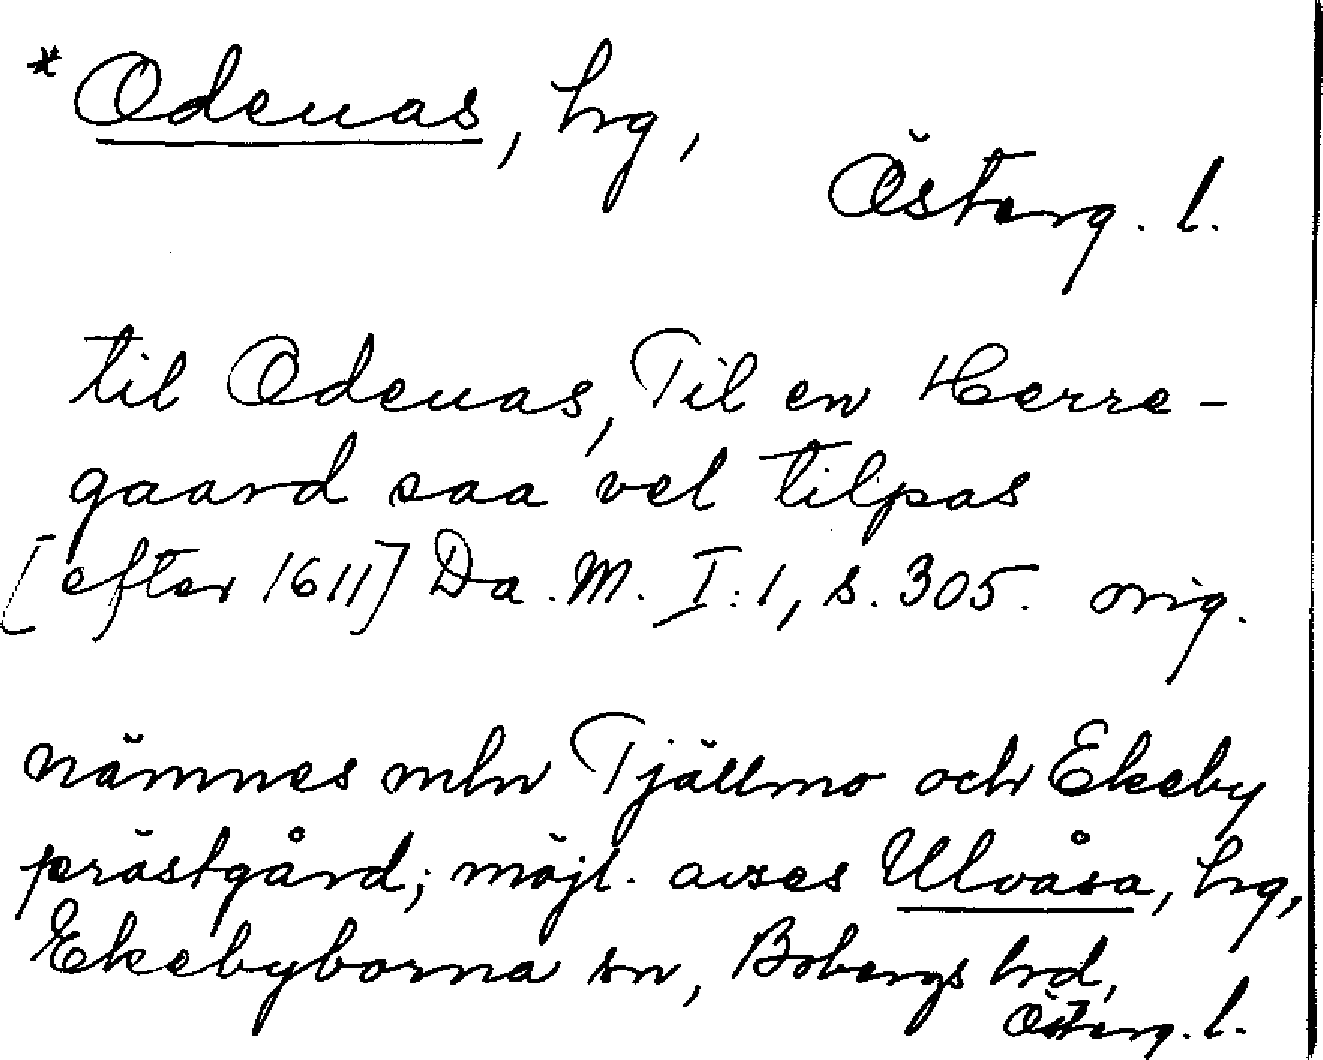 *Odenas, hrg,
Österg. l.
til Odenas, Til en Herre-
gaard saa vel tilpas
[efter 1611] Da. M. I:1, s. 305. orig.
nämnes mln Tjällmo och Ekeby
prästgård; möjl. avses Ulvåsa, hrg,
Ekebyborna sn, Bobergs hrd,
Österg. l.